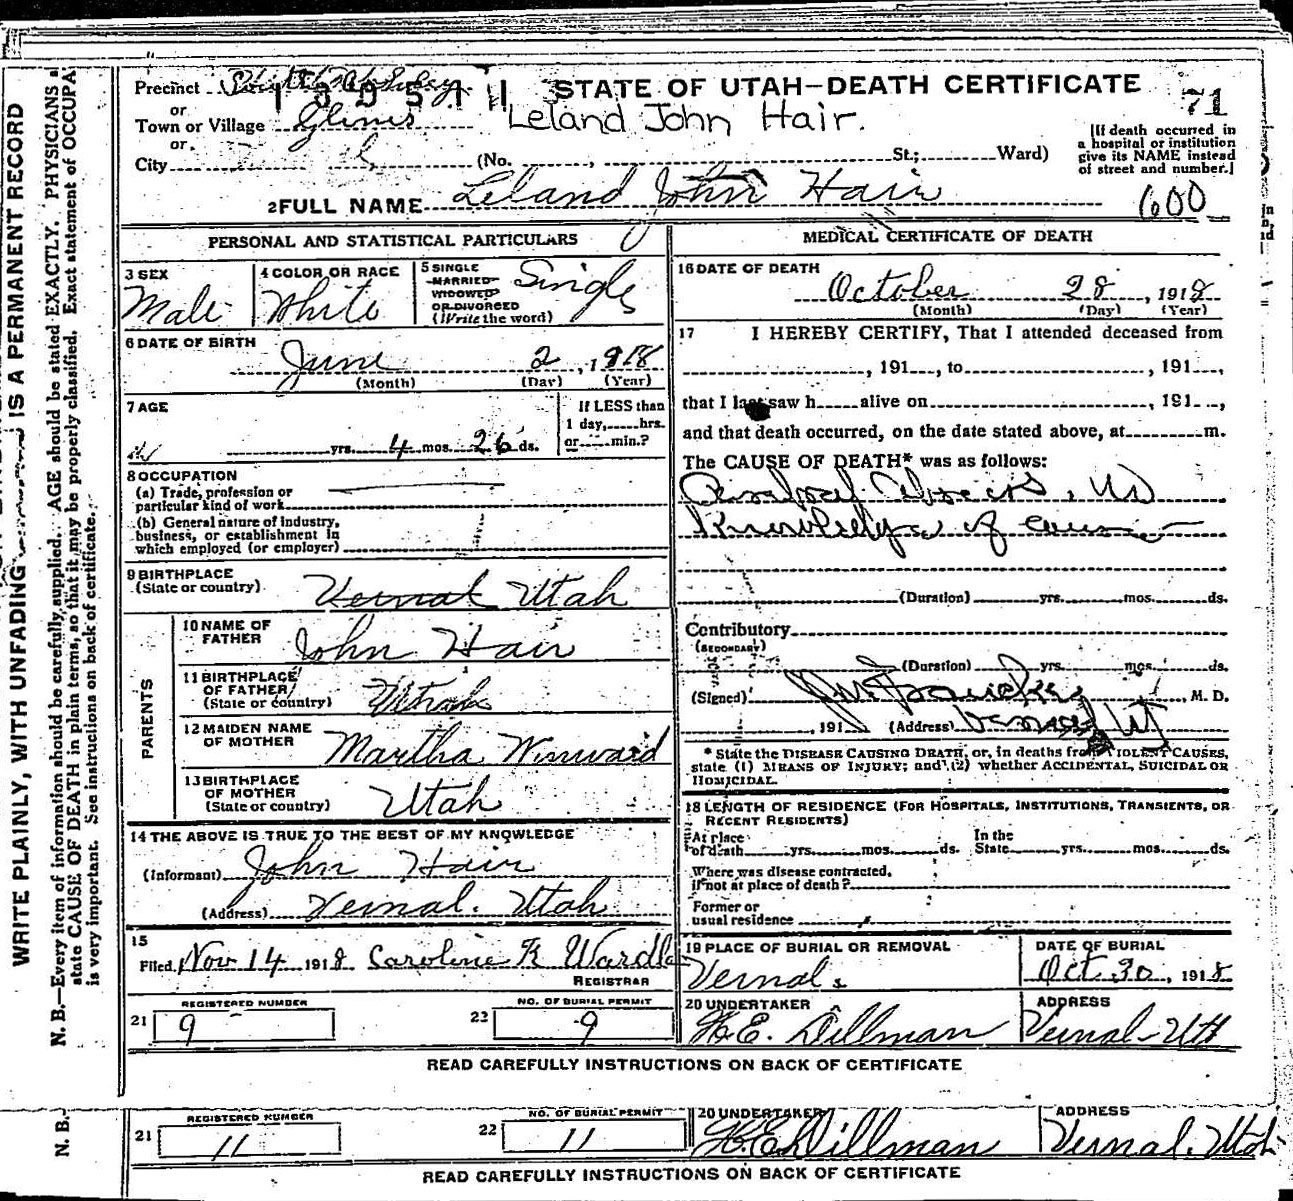 WRITE PLAINLY, WITH UNFADING IS A PERMANENT RECORD
N. B.—Every item of information should be carefully supplied. AGE should be stated EXACTLY. PHYSICIANS s
state CAUSE OF DEATH in plain terms, so that it may be properly classified. Exact statement of OCCUPA
is very important. See instructions on back of certificate.
Precinct
STATE OF UTAH—DEATH CERTIFICATE
71
or
Town or Village Glines
Leland John Hair.
or
City (No. , St.; Ward)
[If death occurred in
a hospital or institution
give its NAME instead
of street and number.]
2 FULL NAME Leland John Hair
600
PERSONAL AND STATISTICAL PARTICULARS
3 SEX
Male
4 COLOR OR RACE
White
5 SINGLE
MARRIED
WIDOWED
OR DIVORCED
(Write the word)
Single
6 DATE OF BIRTH
June 2, 1918
(Month) (Day) (Year)
7 AGE
yrs. 4 mos. 26 ds.
If LESS than
1 day, hrs.
or min.?
8 OCCUPATION
(a) Trade, profession or
particular kind of work
(b) General nature of industry,
business, or establishment in
which employed (or employer)
9 BIRTHPLACE
(State or country)
Vernal Utah
PARENTS
10 NAME OF
FATHER
John Hair
11 BIRTHPLACE
OF FATHER
(State or country)
Utah
12 MAIDEN NAME
OF MOTHER
Martha Winward
13 BIRTHPLACE
OF MOTHER
(State or country)
Utah
14 THE ABOVE IS TRUE TO THE BEST OF MY KNOWLEDGE
(Informant) John Hair
(Address) Vernal. Utah
15
Filed, Nov 14 1918 Caroline K Wardl
REGISTRAR
REGISTERED NUMBER
21 9
NO. OF BURIAL PERMIT
22 9
MEDICAL CERTIFICATE OF DEATH
16 DATE OF DEATH
October 28, 1918
(Month) (Day) (Year)
17 I HEREBY CERTIFY, That I attended deceased from
, 191 , to , 191 ,
that I last saw h alive on , 191 ,
and that death occurred, on the date stated above, at m.
The CAUSE OF DEATH* was as follows:
No
Knowledge of cause
(Duration) yrs. mos. ds.
Contributory
(SECONDARY)
(Duration) yrs. mos. ds.
(Signed) M. D.
, 191 (Address) Vernal Ut
* State the DISEASE CAUSING DEATH, or, in deaths from VIOLENT CAUSES,
state (1) MEANS OF INJURY; and (2) whether ACCIDENTAL, SUICIDAL OR
HOMICIDAL.
18 LENGTH OF RESIDENCE (FOR HOSPITALS, INSTITUTIONS, TRANSIENTS, OR
RECENT RESIDENTS)
At place
of death yrs. mos. ds.
In the
State yrs. mos. ds.
Where was disease contracted,
if not at place of death?
Former or
usual residence
19 PLACE OF BURIAL OR REMOVAL
Vernal.
DATE OF BURIAL
Oct 30, 1918
20 UNDERTAKER
H.E. Dillman
ADDRESS
Vernal-Uth
READ CAREFULLY INSTRUCTIONS ON BACK OF CERTIFICATE
N. B.
REGISTERED NUMBER
21 11
NO. OF BURIAL PERMIT
22 11
20 UNDERTAKER
H.E. Dillman
ADDRESS
Vernal. Utah
READ CAREFULLY INSTRUCTIONS ON BACK OF CERTIFICATE